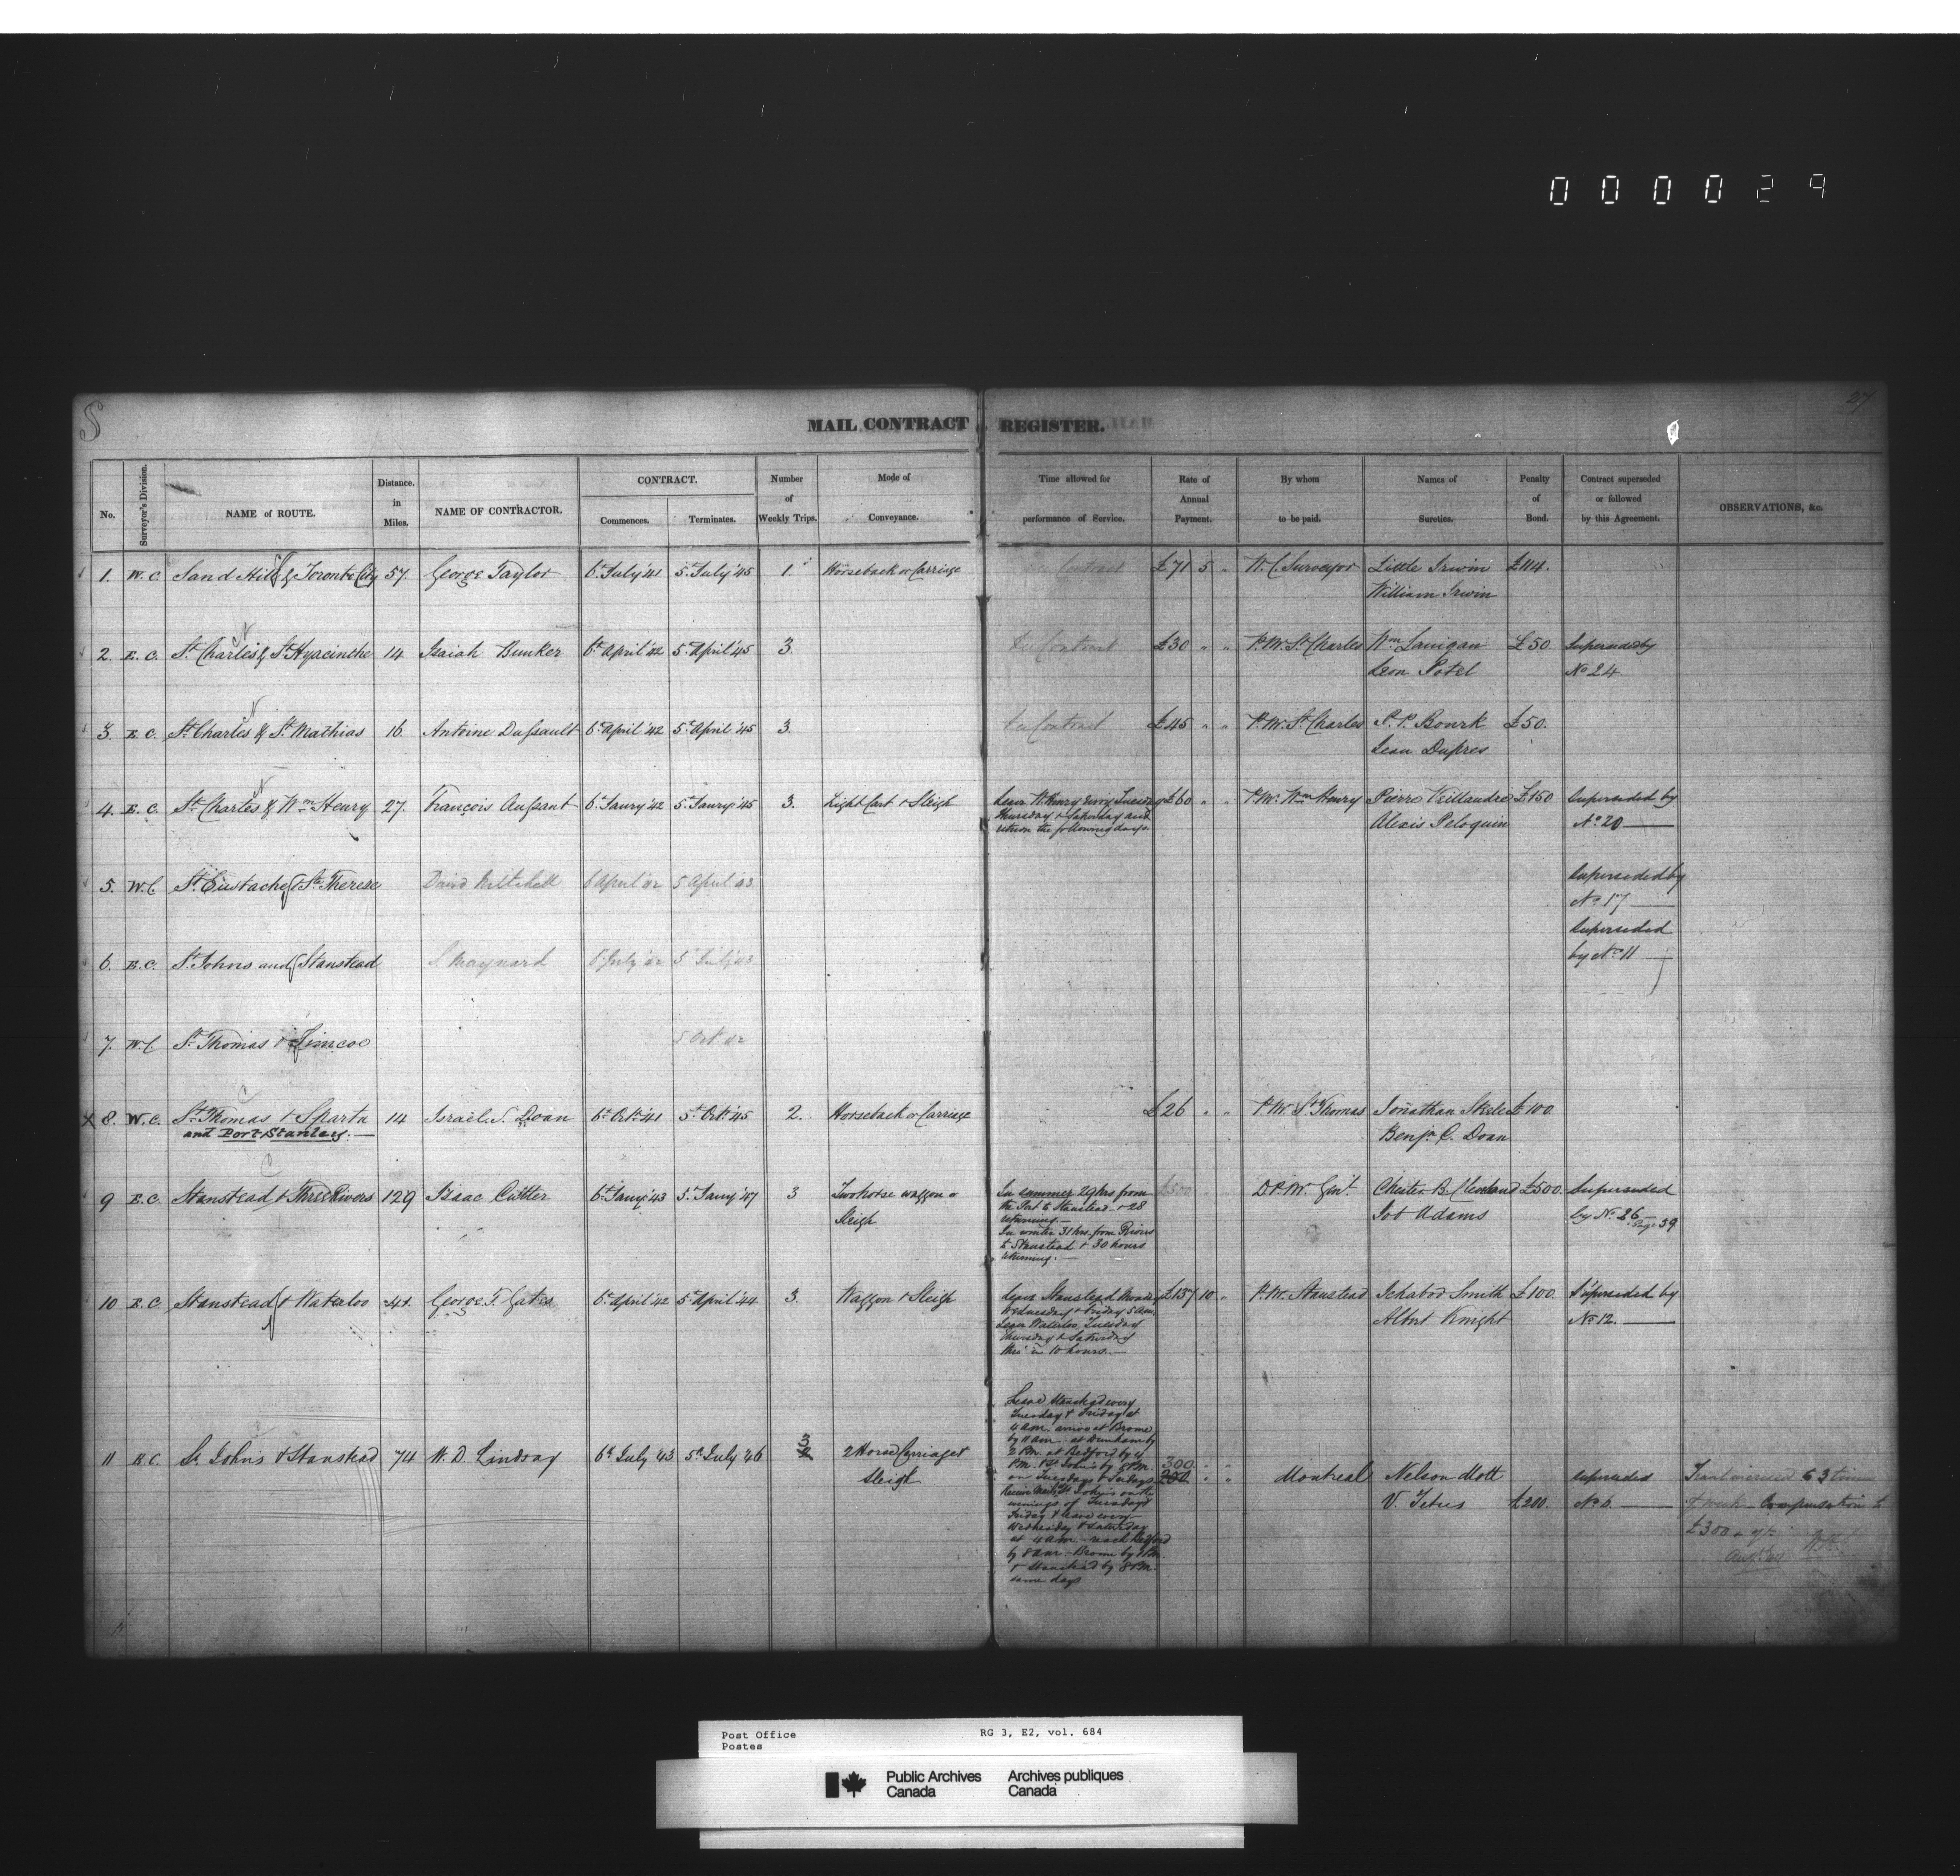 000029
S
27
MAIL CONTRACT REGISTER.
No. Surveyor's Division. NAME of ROUTE. Distance. in Miles. NAME OF CONTRACTOR. CONTRACT. Commences. Terminates. Number of Weekly Trips. Mode of Conveyance. Time allowed for performance of Service. Rate of Annual Payment. By whom to be paid. Names of Sureties. Penalty of Bond. Contract superseded or followed by this Agreement. OBSERVATIONS, &c.
1. W.C. Sand Hill & Toronto City 57. George Taylor 6th July '41 5th July '45 1. Horseback or Carriage Per Contract £71 5 " W. C. Surveyor Little Irwin £114.
William Irwin
2. E.C. St Charles & St Hyacinthe 14 Isaiah Bunker 6th April '42 5th April '45 3 Per Contract £30 " " P.M. St Charles Wm Lanigan £50 Superseded by
Leon Potel No 24
3. E.C. St Charles & St Mathias 16 Antoine Dussault 6th April '42 5th April '45 3 Per Contract £45 " " P.M. St Charles P. P. Bourk £50.
Jean Dupres
4. E.C. St Charles & Wm Henry 27. François Aussant 6th Janry '42 5th Janry '45 3. Light Cart & Sleigh Leave W. Henry every Tuesday £60 " " P.M. Wm Henry Pierre £150 Superseded by
Thursday & Saturday and Alexis Peloquin No 20
return the following days.
5. W.C. St Eustache & St Therese David Mitchell 6 April '42 5 April '43 Superseded by
No 17
6. E.C. St Johns and Stanstead S. Maynard 6 July '42 5 July '43 Superseded
by No 11
7. W.C. St Thomas & Simcoe 5 Oct '42
x 8. W.C. St Thomas & Sparta 14 Israel S. Doan 6th Octr '41 5th Octr '45 2. Horseback or Carriage £26 " " P.M. St Thomas Jonathan £100
and Port Stanley. Benjn C. Doan
9 E.C. Stanstead & Three Rivers 129 Isaac Cutter 6th Janry '43 5th Janry '47 3 Two horse waggon or In summer 29 hrs from £500 D.P.M. Genl. Chester B. Cleveland £500 Superseded
Sleigh the Port to Stanstead & 28 Job Adams by No 26 Page 39
returning.
In winter 31 hrs. from Rivers
to Stanstead & 30 hours
returning.
10 E.C. Stanstead & Waterloo 41. George T. Gates 6th April '42 5th April '44 3 Waggon & Sleigh Leave Stanstead Monday £157 10 " P.M. Stanstead Ichabod Smith £100 Superseded by
Wednesday & Friday 5 a.m. Albert Knight No 12.
Leave Waterloo Tuesday
Thursday & Saturday
thro' in 10 hours.
11 E.C. St Johns & Stanstead 74 W. D. Lindsay 6th July '43 5th July '46 3 2 2 Horse Carriage & Sleigh
Leave Stanstead every
Tuesday & Friday at
4 a.m. arrive at Brome
by 11 a.m. at Dunham by
2 P.M. at Bedford by 4
P.M. & St Johns by 8 P.M.
on Tuesdays & Fridays
Receive Mails St Johns on the
evenings of Tuesday &
Friday & leave every
Wednesday & Saturday
at 4 a.m. reach Bedford
by 8 a.m. Brome by 1 P.M.
& Stanstead by 8 P.M.
same days
300 " "
200 " " Montreal Nelson Mott superseded
V. Tetus £200. No 6
increased to 3 times
a week Compensation to
£300
Post Office RG 3, E2, vol. 684
Postes
Public Archives Archives publiques
Canada Canada